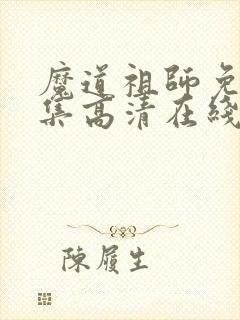 魔道祖師免
集高清在綫
陳履生